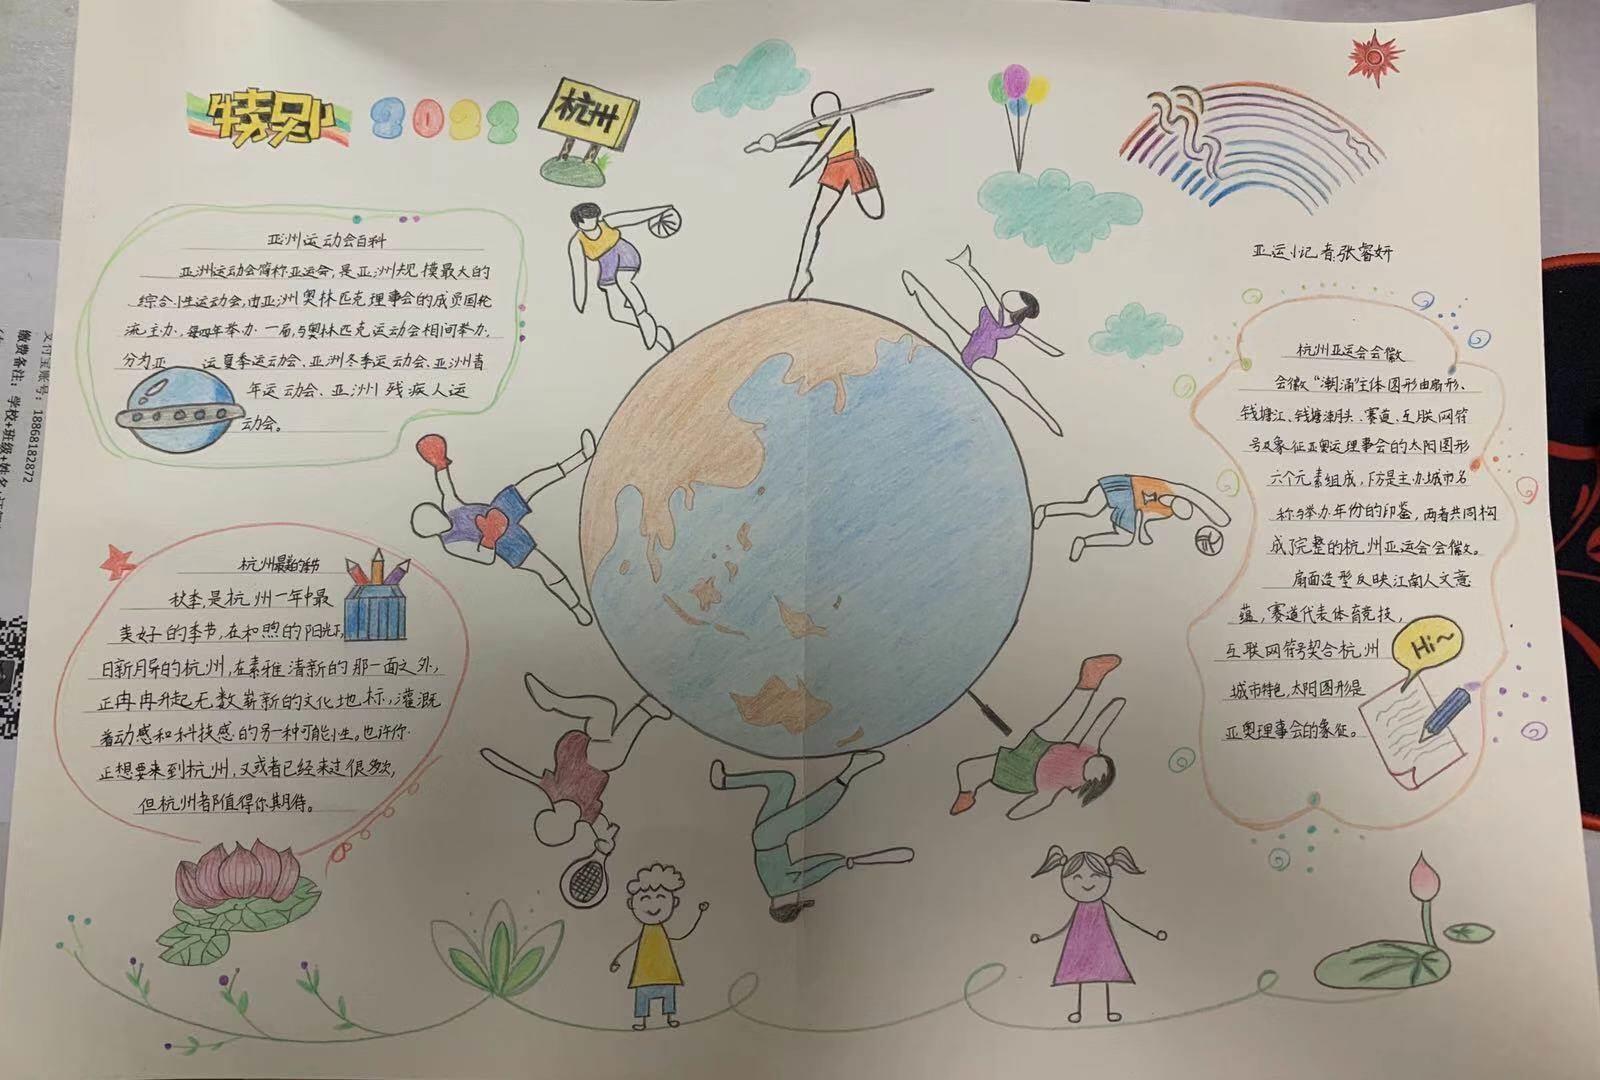 特别 2022 杭州
亚洲运动会百科
亚洲运动会简称亚运会,是亚洲规模最大的
综合性运动会,由亚洲奥林匹克理事会的成员国轮
流主办,每四年举办一届,与奥林匹克运动会相间举办,
分为亚运夏季运动会、亚洲冬季运动会、亚洲青
年运动会、亚洲残疾人运
动会。
杭州最美的季节
秋季,是杭州一年中最
美好的季节,在和煦的阳光下,
日新月异的杭州,在素雅清新的那一面之外,
正冉冉升起无数崭新的文化地标,灌溉
着动感和科技感的另一种可能性。也许你
正想要来到杭州,又或者已经来过很多次,
但杭州都值得你期待。
亚运小记者:张睿妍
杭州亚运会会徽
会徽“潮涌”主体图形由扇形、
钱塘江、钱塘潮头、赛道、互联网符
号及象征亚奥运理事会的太阳图形
六个元素组成,下方是主办城市名
称与举办年份的印鉴,两者共同构
成了完整的杭州亚运会会徽。
扇面造型反映江南人文意
蕴,赛道代表体育竞技,
互联网符号契合杭州
城市特色,太阳图形是
亚奥理事会的象征。
Hi~
支付宝账号:18868182872
缴费备注:学校+班级+姓名